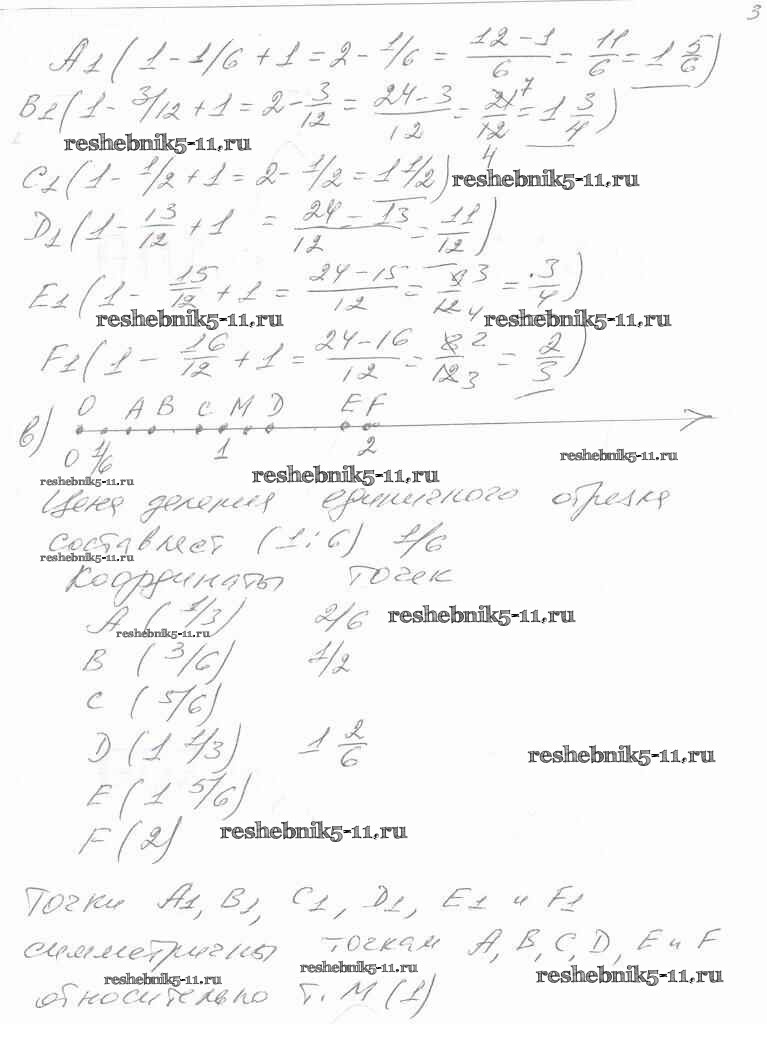 3
A1 (1 - 1/6 + 1 = 2 - 1/6 = 12-1/6 = 11/6 = 1 5/6)
B1 (1 - 3/12 + 1 = 2 - 3/12 = 24-3/12 = 21 7/12 4 = 1 3/4)
reshebnik5-11.ru
C1 (1 - 1/2 + 1 = 2 - 1/2 = 1 1/2) reshebnik5-11.ru
D1 (1 - 13/12 + 1 = 24-13/12 = 11/12)
E1 (1 - 15/12 + 1 = 24-15/12 = 9 3/12 4 = 3/4)
reshebnik5-11.ru reshebnik5-11.ru
F1 (1 - 16/12 + 1 = 24-16/12 = 8 2/12 3 = 2/3)
в) O A B C M D E F
0 1/6 1 2
reshebnik5-11.ru reshebnik5-11.ru reshebnik5-11.ru
Цена деления единичного отрезка
составляет (1:6) 1/6
reshebnik5-11.ru
Координаты точек
A (1/3) 2/6 reshebnik5-11.ru
reshebnik5-11.ru
B (3/6) 1/2
C (5/6)
D (1 1/3) 1 2/6
reshebnik5-11.ru
E (1 5/6)
F (2) reshebnik5-11.ru
Точки A1, B1, C1, D1, E1 и F1
симметричны точкам A, B, C, D, E и F
reshebnik5-11.ru reshebnik5-11.ru reshebnik5-11.ru
относительно т. M (1)